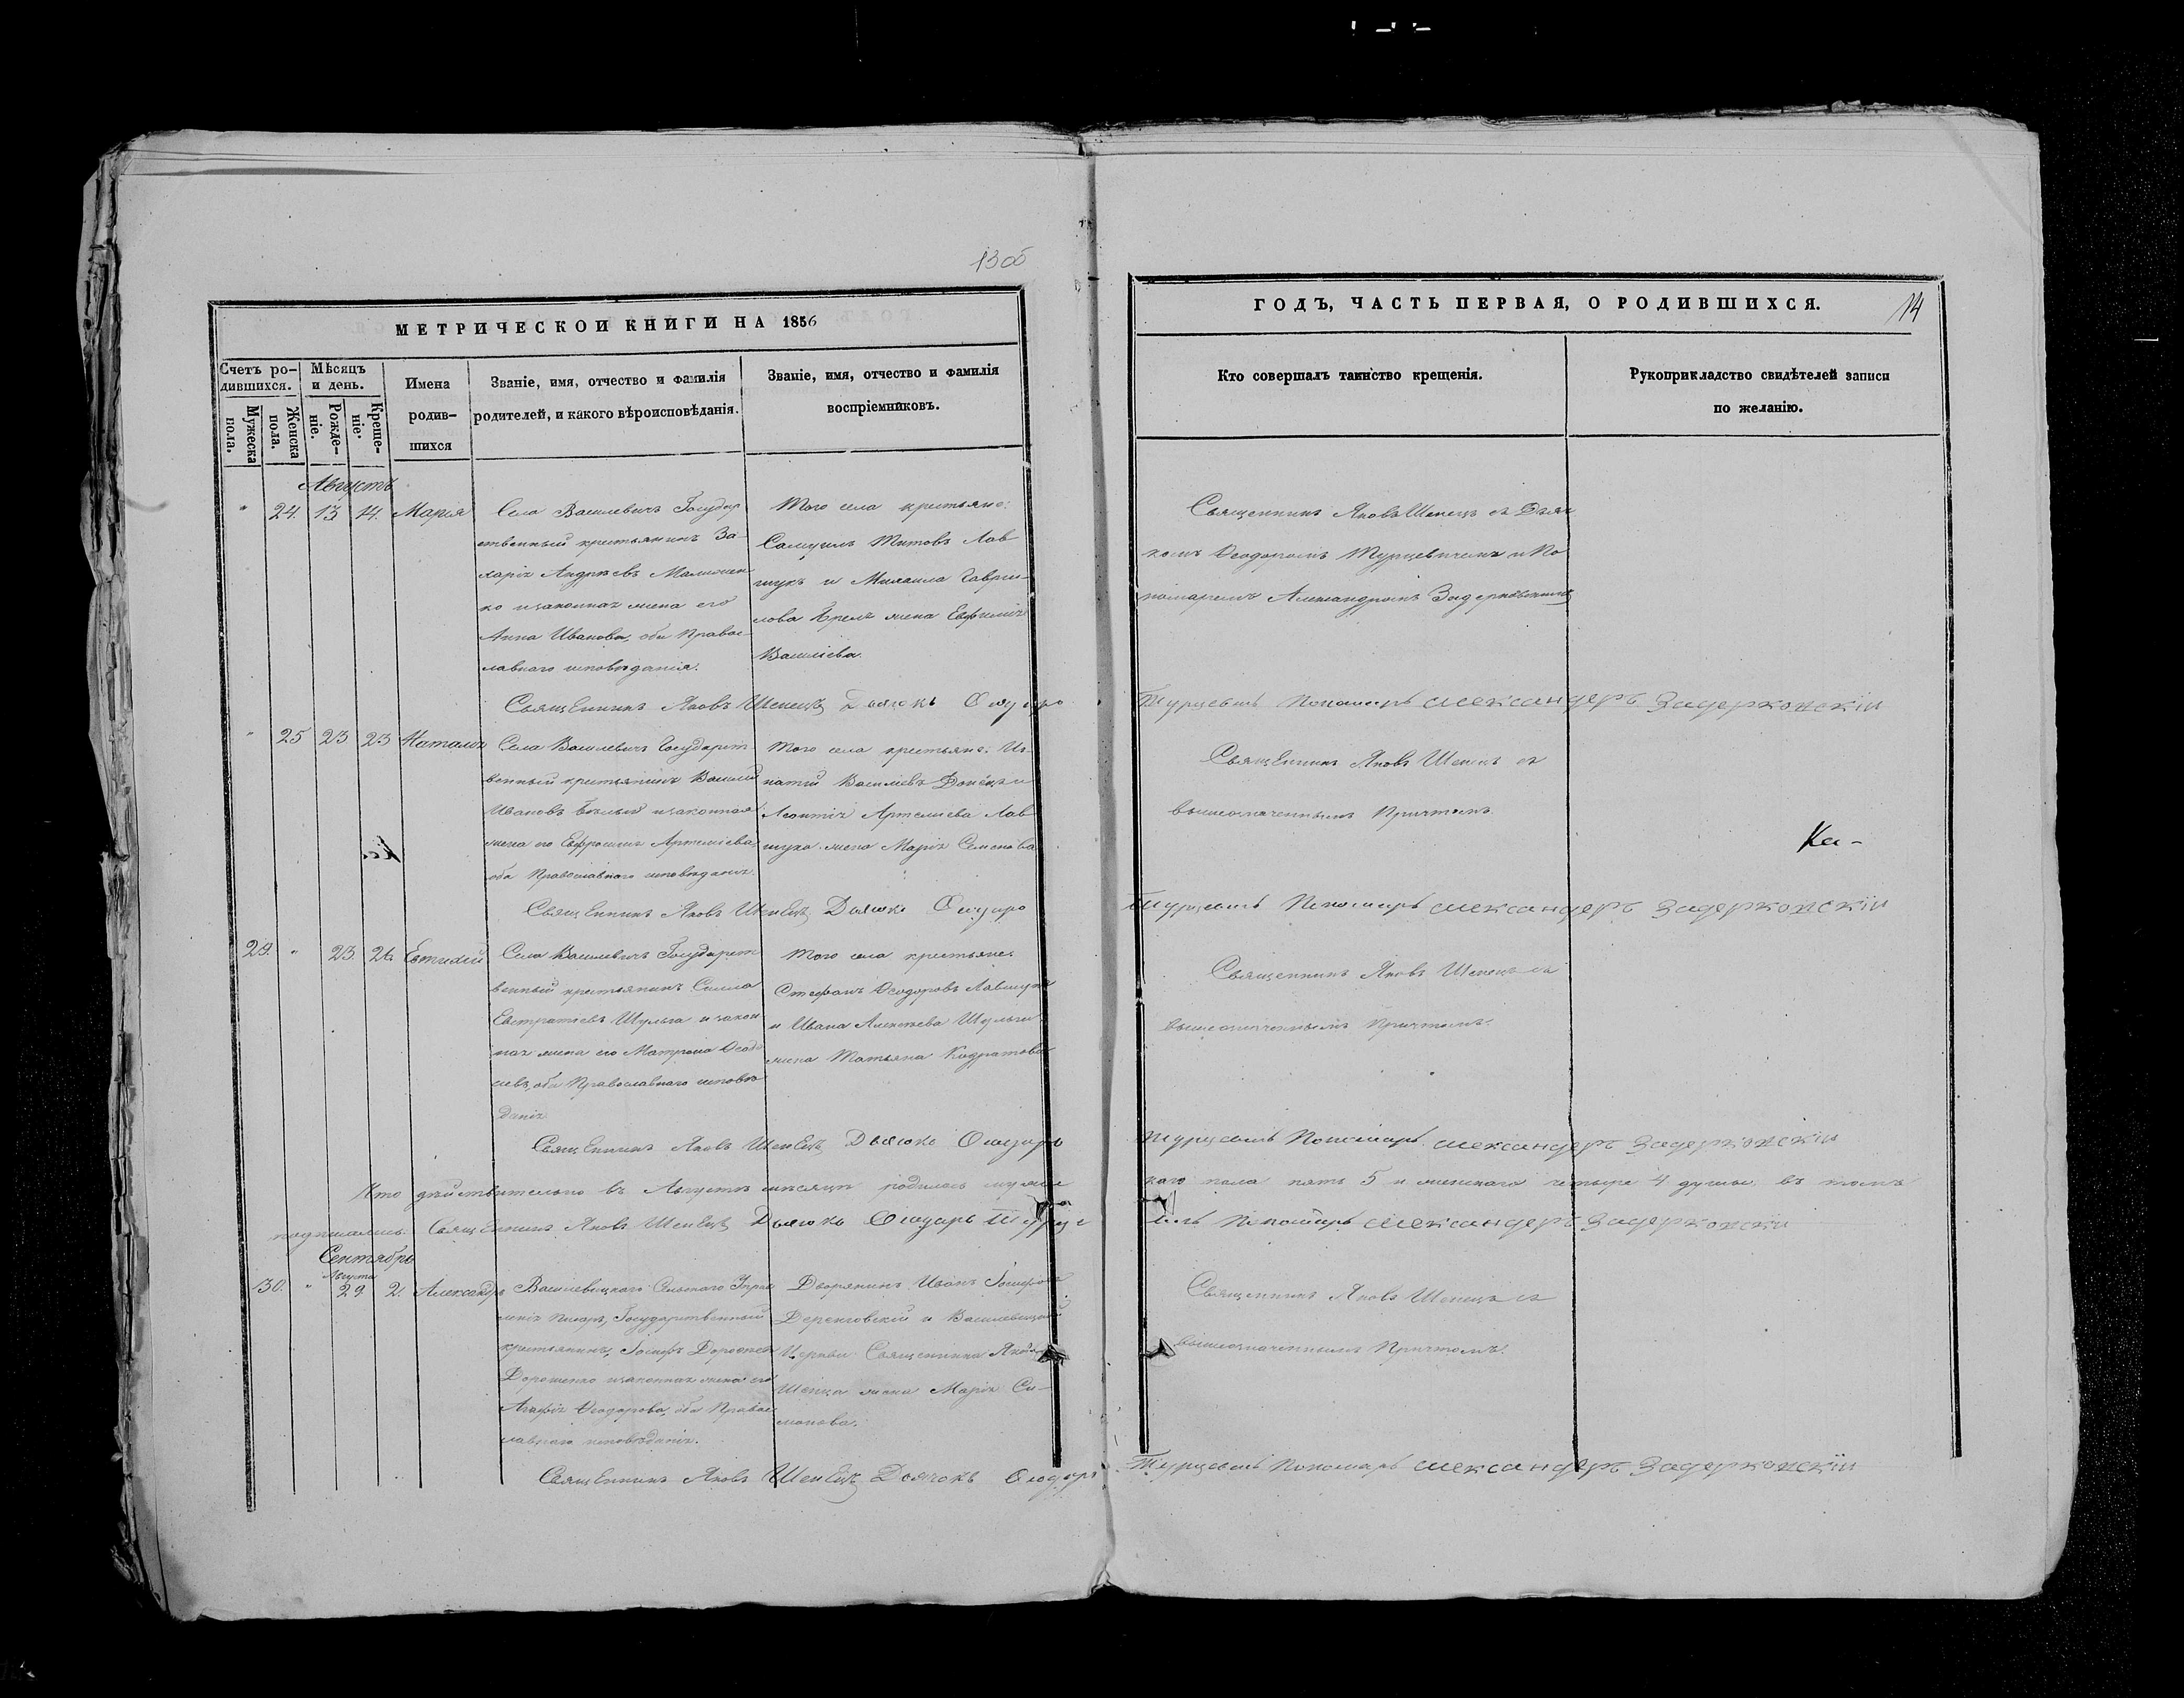 13об
МЕТРИЧЕСКОЙ КНИГИ НА 1856
Счетъ ро-
дившихся.
Мужеска
пола.
Женска
пола.
Мѣсяцъ
и день.
Рожде-
ніе.
Креще-
ніе.
Имена
родив-
шихся
Званіе, имя, отчество и фамилія
родителей, и какого вѣроисповѣданія.
Званіе, имя, отчество и фамилія
воспріемниковъ.
Августъ
" 24. 13 14. Марія
Села Василевичъ Государ
ственный крестьянинъ За-
харія Андреевъ
ко и законная жена его
Анна Иванова, оба Правос-
лавнаго исповѣданія.
Того села крестьяне:
Самуилъ Титовъ Лав
щукъ и Михаила Гаври-
лова жена Евфимія
Василіева.
Священникъ Яковъ Шепецъ Дьячокъ Ѳеодоръ
" 25 23 23 Наталія
Села Василевичъ Государст
венный крестьянинъ Василій
Ивановъ Бѣлый и законная
жена его Евфросинія Артеміева,
оба Православнаго исповѣданія.
Того села крестьяне: Иг-
натій Василіевъ Донецъ и
Леонтія Артеміева Лав
щука жена Марія Семенова
Священникъ Яковъ Шепецъ Дьячокъ Ѳеодоръ
29. " 23. 26. Евтихій
Села Василевичъ Государст
венный крестьянинъ Симма
Евстратіевъ Шульга и закон
ная жена его Матрона Ѳеодо
оба Православнаго исповѣ
данія
Того села крестьяне:
Стефанъ Ѳеодоровъ Лавщукъ
и Ивана Алексѣева Шульги
жена Татьяна Кодратова
Священникъ Яковъ Шепецъ Дьячокъ Ѳеодоръ
Что дѣйствительно въ Августѣ мѣсяцѣ родилось мужес
подписались: Священникъ Яковъ Шепецъ Дьячокъ Ѳеодоръ Турце
Сентябрь
Августа
30. " 29 2. Александръ
Василевицкаго Сельскаго Управ
ленія Писарь, Государственный
крестьянинъ, Іосифъ
Дорошенко и законная жена его
Агафія Ѳеодорова, оба Правос
лавнаго исповѣданія.
Дворянинъ Иванъ Іосифовъ
и Василевицкой
Церкви Священника Якова
Шепца жена Марія Си-
монова.
Священникъ Яковъ Шепецъ Дьячокъ Ѳеодоръ
ГОДЪ, ЧАСТЬ ПЕРВАЯ, О РОДИВШИХСЯ.
14
Кто совершалъ таинство крещенія.
Рукоприкладство свидѣтелей записи
по желанію.
Священникъ Яковъ Шепецъ съ Дьяч
комъ Ѳеодоромъ Турцевичемъ и По
номаремъ Александромъ Задерковскимъ
Турцевичъ Пономарь Александеръ Задерковскій
Священникъ Яковъ Шепецъ съ
вышеозначеннымъ Причтомъ.
Турцевичъ Пономарь Александеръ Задерковскій
Священникъ Яковъ Шепецъ съ
вышеозначеннымъ Причтомъ.
Турцевичъ Пономарь Александеръ Задерковскій
каго пола пять 5 и женскаго четыре 4 душы, въ томъ
Пономарь Александеръ Задерковскій
Священникъ Яковъ Шепецъ съ
вышеозначеннымъ Причтомъ.
Турцевичъ Пономарь Александеръ Задерковскій